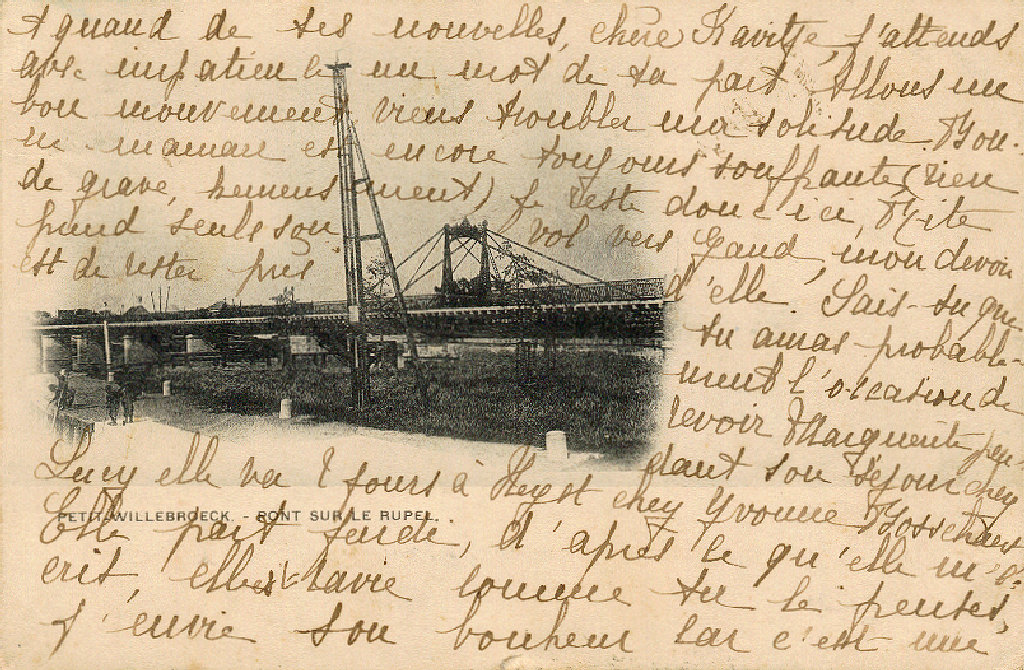 A quand de tes nouvelles, chère Kavitje, j'attends
avec impatience un mot de ta part. Allons un
bon mouvement viens troubler ma solitude. Bon-
ne maman est encore toujours souffrante (rien
de grave, heureusement) je reste donc ici, Mite
prend seule son vol vers Gand, mon devoir
est de rester près d'elle. Sais-tu que
tu auras probable-
ment l'occasion de
revoir Marguerite pen-
dant son séjour chez
Lucy elle va 8 jours à Heyst chez Yvonne Bosschaert
PETIT-WILLEBROECK. - PONT SUR LE RUPEL.
Elle part jeudi, d'après ce qu'elle m'é-
crit, elle est ravie comme tu le penses,
j'envie son bonheur car c'est une